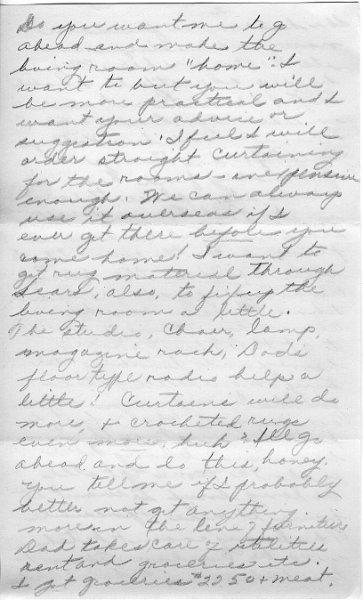 Do you want me to go
ahead and make the
living room "home". I
want to but you will
be more practical and I
want your advice or
suggestion. I feel I will
order straight curtaining
for the rooms - inexpensive
enough. We can always
use it overseas if I
ever get there before you
come home! I want to
get rug material through
Sears, also, to fix up the
living room a little.
The studio, chair, lamp,
magazine rack, Dad's
floor type radio help a
little! Curtains will do
more, + crocheted rugs
even more, huh? I'll go
ahead and do this, honey.
You tell me if I probably
better not get anything
more in the line of furniture
Dad takes care of utilities
rent and groceries etc.
I got groceries $22.50 + meat.